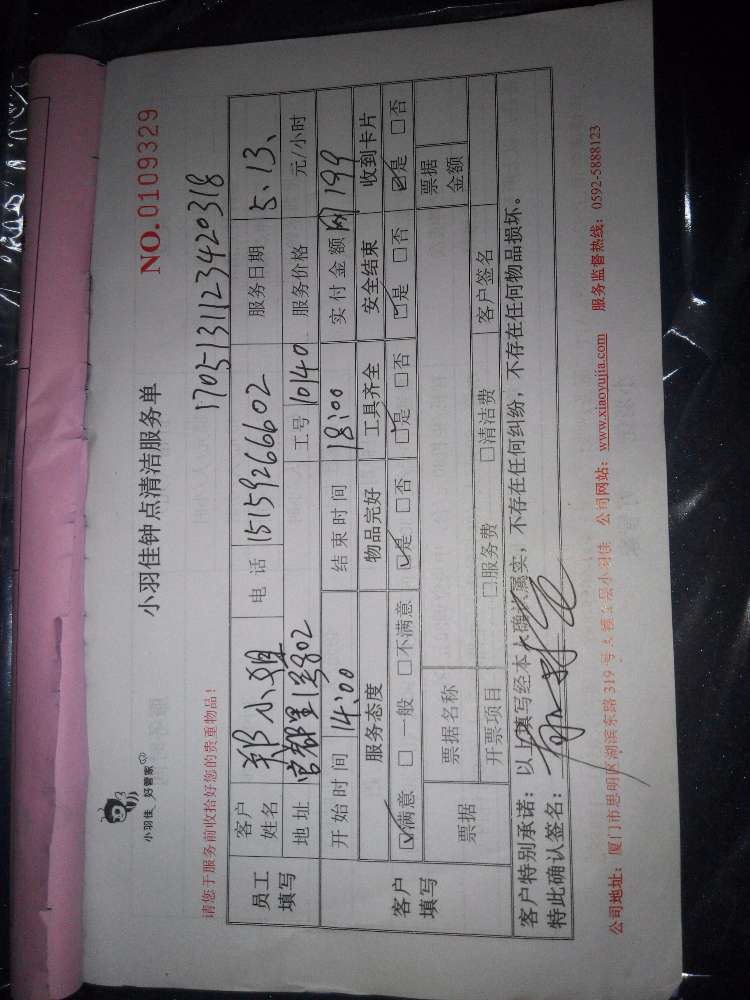 小羽佳 好管家
小羽佳钟点清洁服务单
NO.0109329
请您于服务前收拾好您的贵重物品！
1705131123420318
员工填写 客户姓名 郑小姐 电话 15159266602 服务日期 5.13、
地址 官都里1号802 工号 10140 服务价格 元/小时
开始时间 14:00 结束时间 18:00 实付金额 网199
客户填写 服务态度 物品完好 工具齐全 安全结束 收到卡片
☑满意 □一般 □不满意 ☑是 □否 ☑是 □否 ☑是 □否 ☑是 □否
票据 票据名称 票据金额
开票项目 □服务费 □清洁费 客户签名
客户特别承诺：以上填写经本人确认属实，不存在任何纠纷，不存在任何物品损坏。
特此确认签名：
公司地址：厦门市思明区湖滨东路319号 层小羽佳 公司网站：www.xiaoyujia.com 服务监督热线：0592-5888123